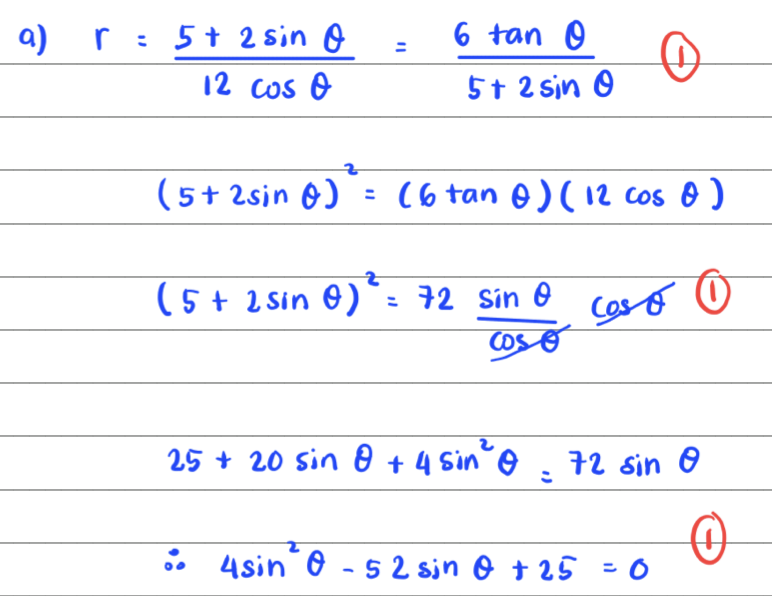 a) r = (5 + 2 sin θ)/(12 cos θ) = (6 tan θ)/(5 + 2 sin θ) ①
(5 + 2 sin θ)² = (6 tan θ)(12 cos θ)
(5 + 2 sin θ)² = 72 (sin θ)/(cos θ) cos θ ①
25 + 20 sin θ + 4 sin² θ = 72 sin θ
∴ 4 sin² θ - 52 sin θ + 25 = 0 ①